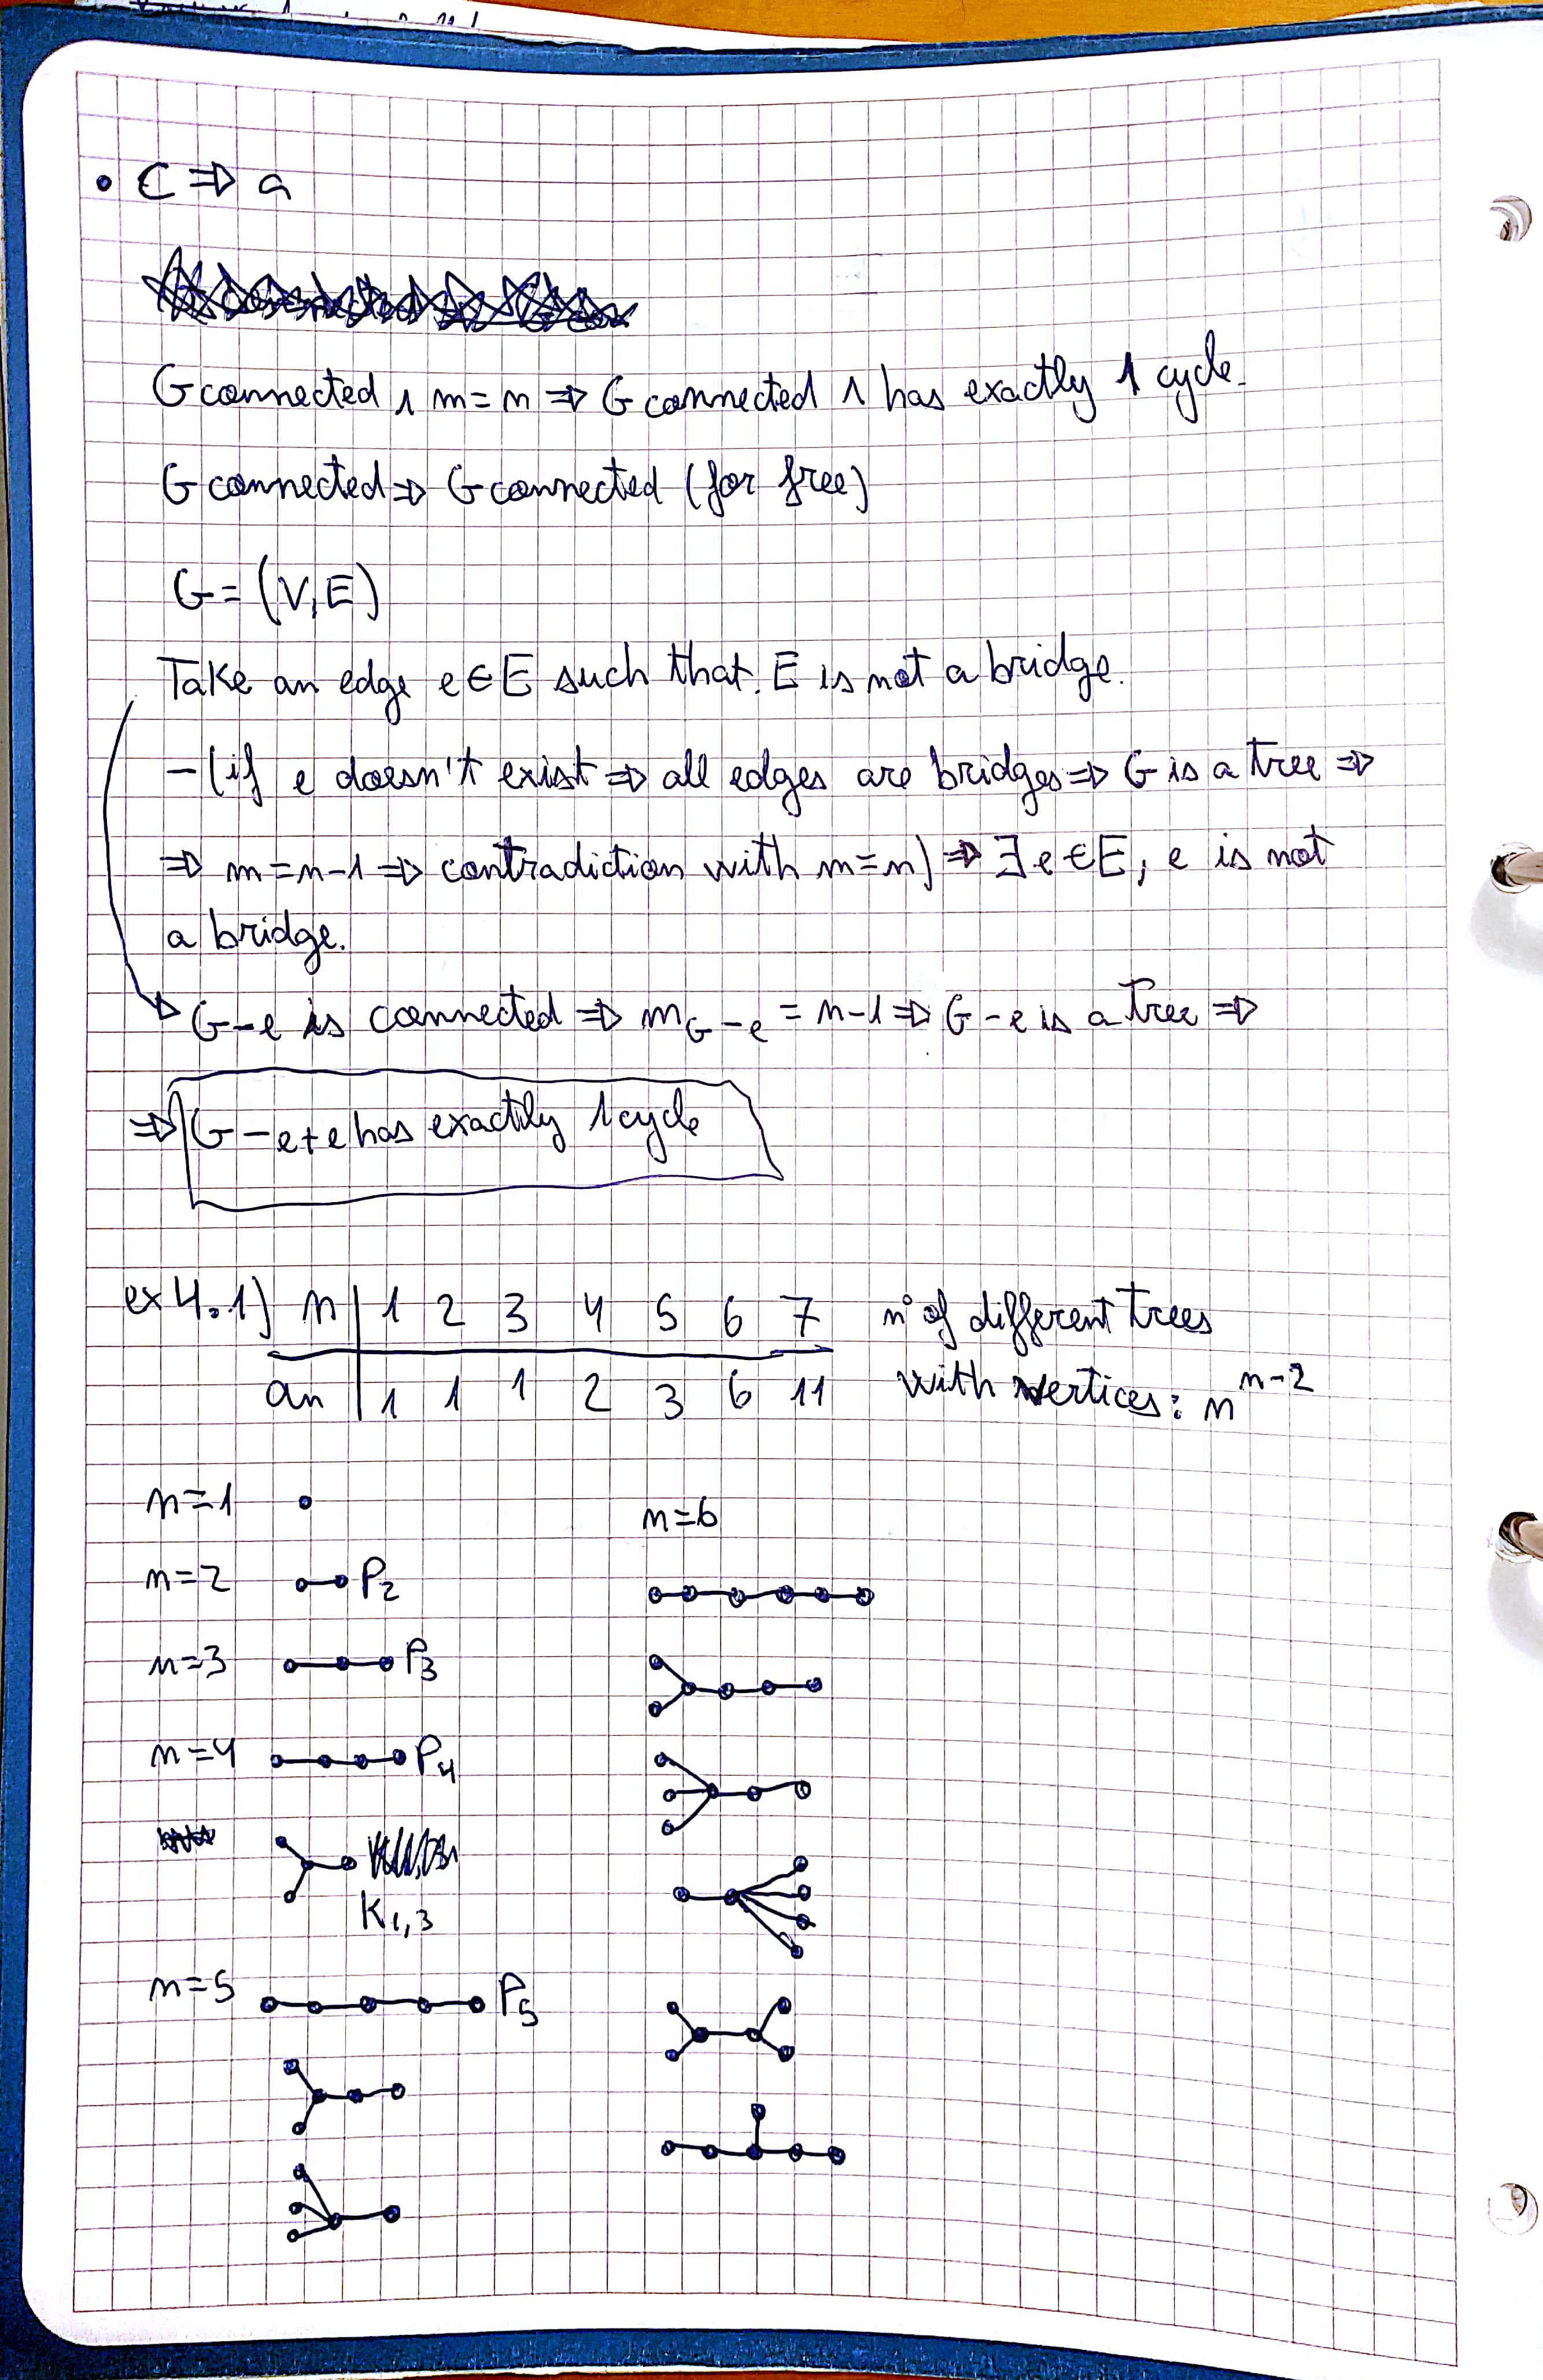 • C ⇒ a
G connected ∧ m = n ⇒ G connected ∧ has exactly 1 cycle.
G connected ⇒ G connected (for free)
G = (V, E)
Take an edge e ∈ E such that. E is not a bridge.
- (if e doesn't exist ⇒ all edges are bridges ⇒ G is a tree ⇒
⇒ m = n-1 ⇒ contradiction with m = n) ⇒ ∃ e ∈ E, e is not
a bridge.
G-e is connected ⇒ m_{G-e} = n-1 ⇒ G-e is a tree ⇒
⇒ G-e+e has exactly 1 cycle
ex 4.1) n | 1 2 3 4 5 6 7 nº of different trees
an | 1 1 1 2 3 6 11 with vertices: n^{n-2}
n=1
n=2 P2
n=3 P3
n=4 P4
K1,3
n=5 P5
n=6